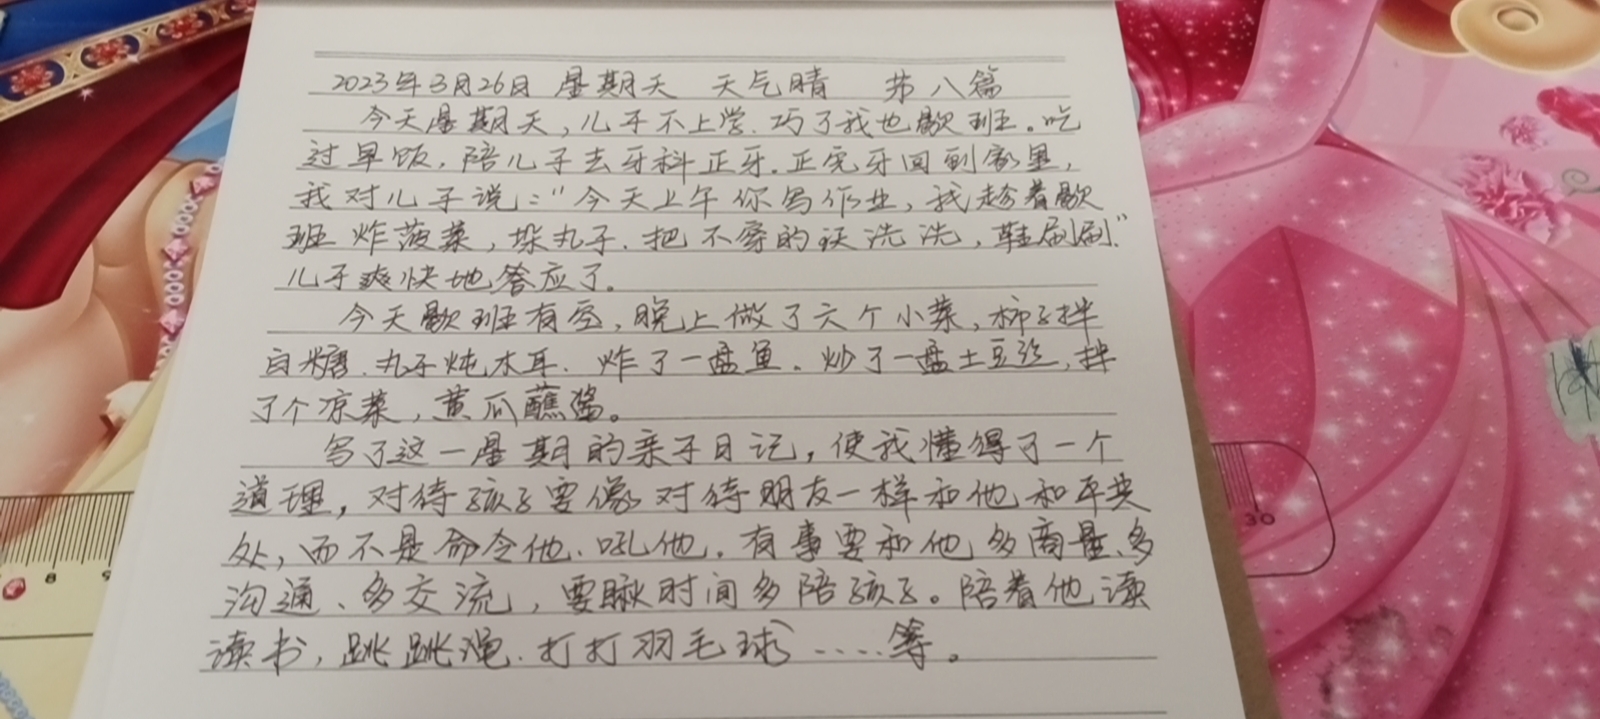 2023年3月26日 星期天 天气晴 第八篇
今天星期天，儿子不上学.巧了我也歇班。吃
过早饭，陪儿子去牙科正牙.正完牙回到家里，
我对儿子说："今天上午你写作业，我趁着歇
班炸菠菜，垛丸子.把不穿的袄洗洗，鞋刷刷."
儿子爽快地答应了.
今天歇班有空，晚上做了六个小菜，柿子拌
白糖.丸子炖木耳.炸了一盘鱼.炒了一盘土豆丝，拌
了个凉菜，黄瓜蘸酱。
写了这一星期的亲子日记，使我懂得了一个
道理，对待孩子要像对待朋友一样和他和平共
处，而不是命令他、吼他.有事要和他多商量、多
沟通、多交流，要瞅时间多陪孩子。陪着他读
读书，跳跳绳.打打羽毛球……等。
8
9
30